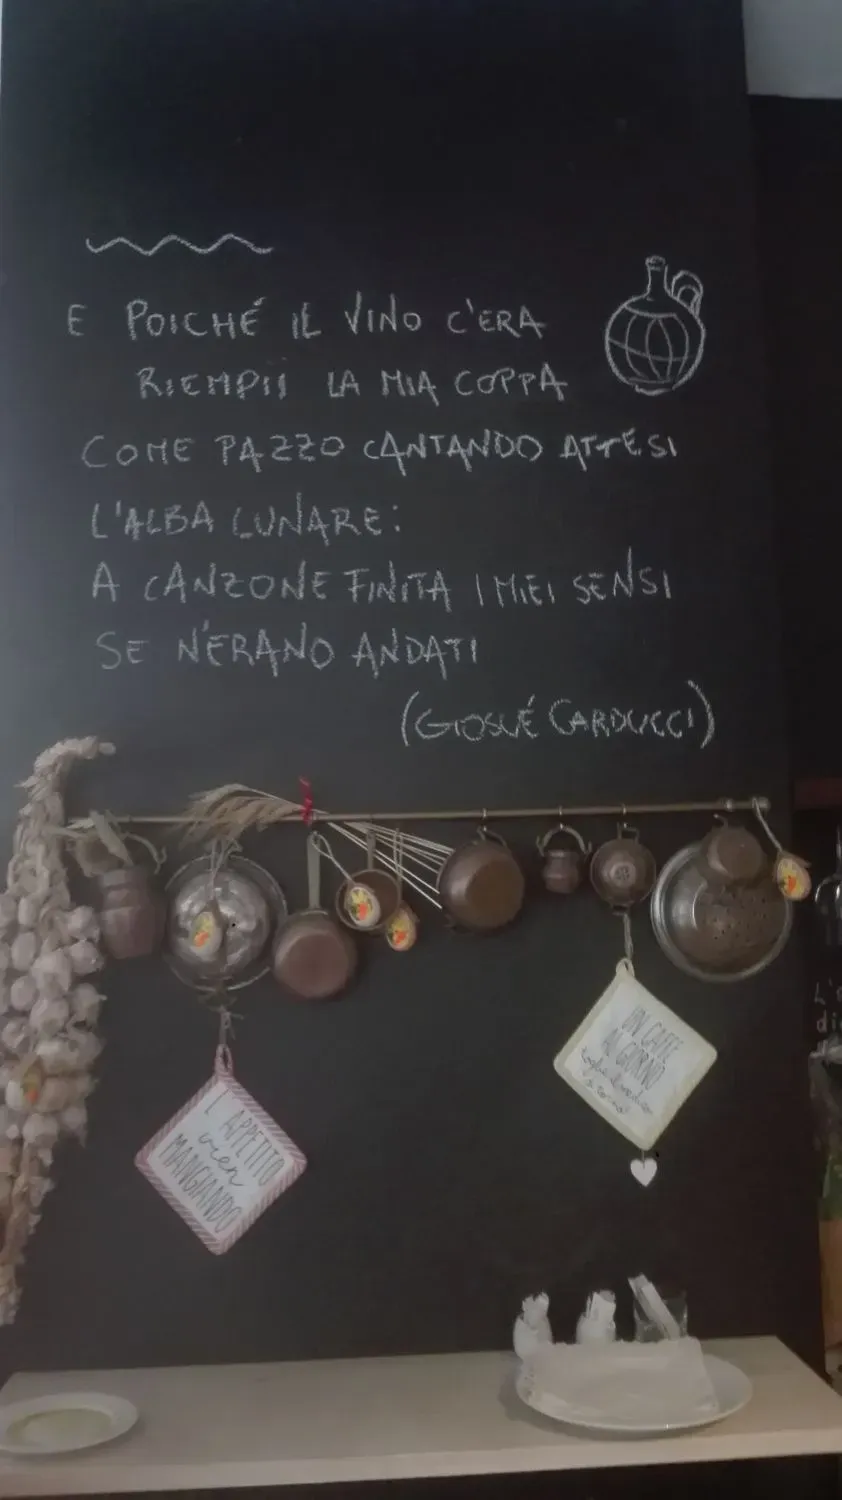 E POICHÉ IL VINO C'ERA
RIEMPII LA MIA COPPA
COME PAZZO CANTANDO ATTESI
L'ALBA LUNARE:
A CANZONE FINITA I MIEI SENSI
SE N'ERANO ANDATI
(GIOSUÉ CARDUCCI)
UN CAFFÈ
AL GIORNO
toglie il medico
di torno!
L'APPETITO
vien
MANGIANDO